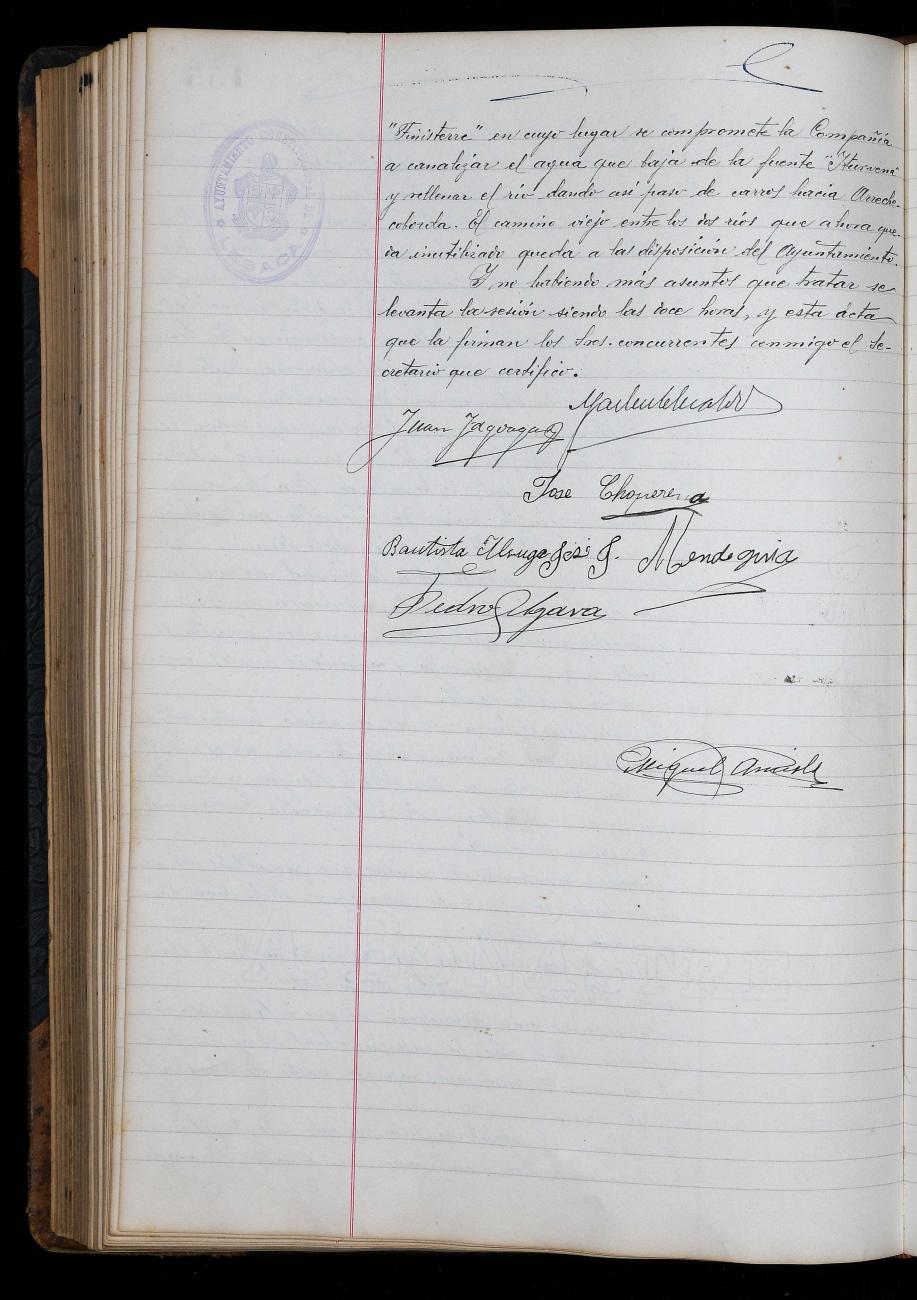 "Finisterre" en cuyo lugar se compromete la Compañía
a canalizar el agua que baja de la fuente
y rellenar el río dando así paso de carros hacia Arreche-
coborda. El camino viejo entre los dos ríos que ahora que-
da inutilizado queda a las disposición del Ayuntamiento.
Y no habiendo más asuntos que tratar se
levanta la sesión siendo las doce horas, y esta acta
que la firman los Sres. concurrentes conmigo el Se-
cretario que certifico.
Juan
Jose Choperena
Bautista José J. Mendeguia
Pedro Algara
Miguel
AYUNTAMIENTO
LESACA